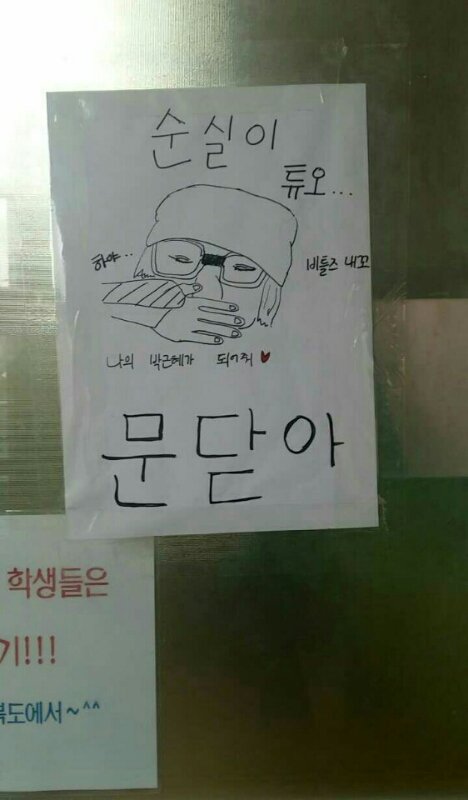 순실이
튜오...
하야..
비틀즈 내꼬
나의 박근혜가 되어줘 ♥
문닫아
학생들은
기!!!
복도에서~^^